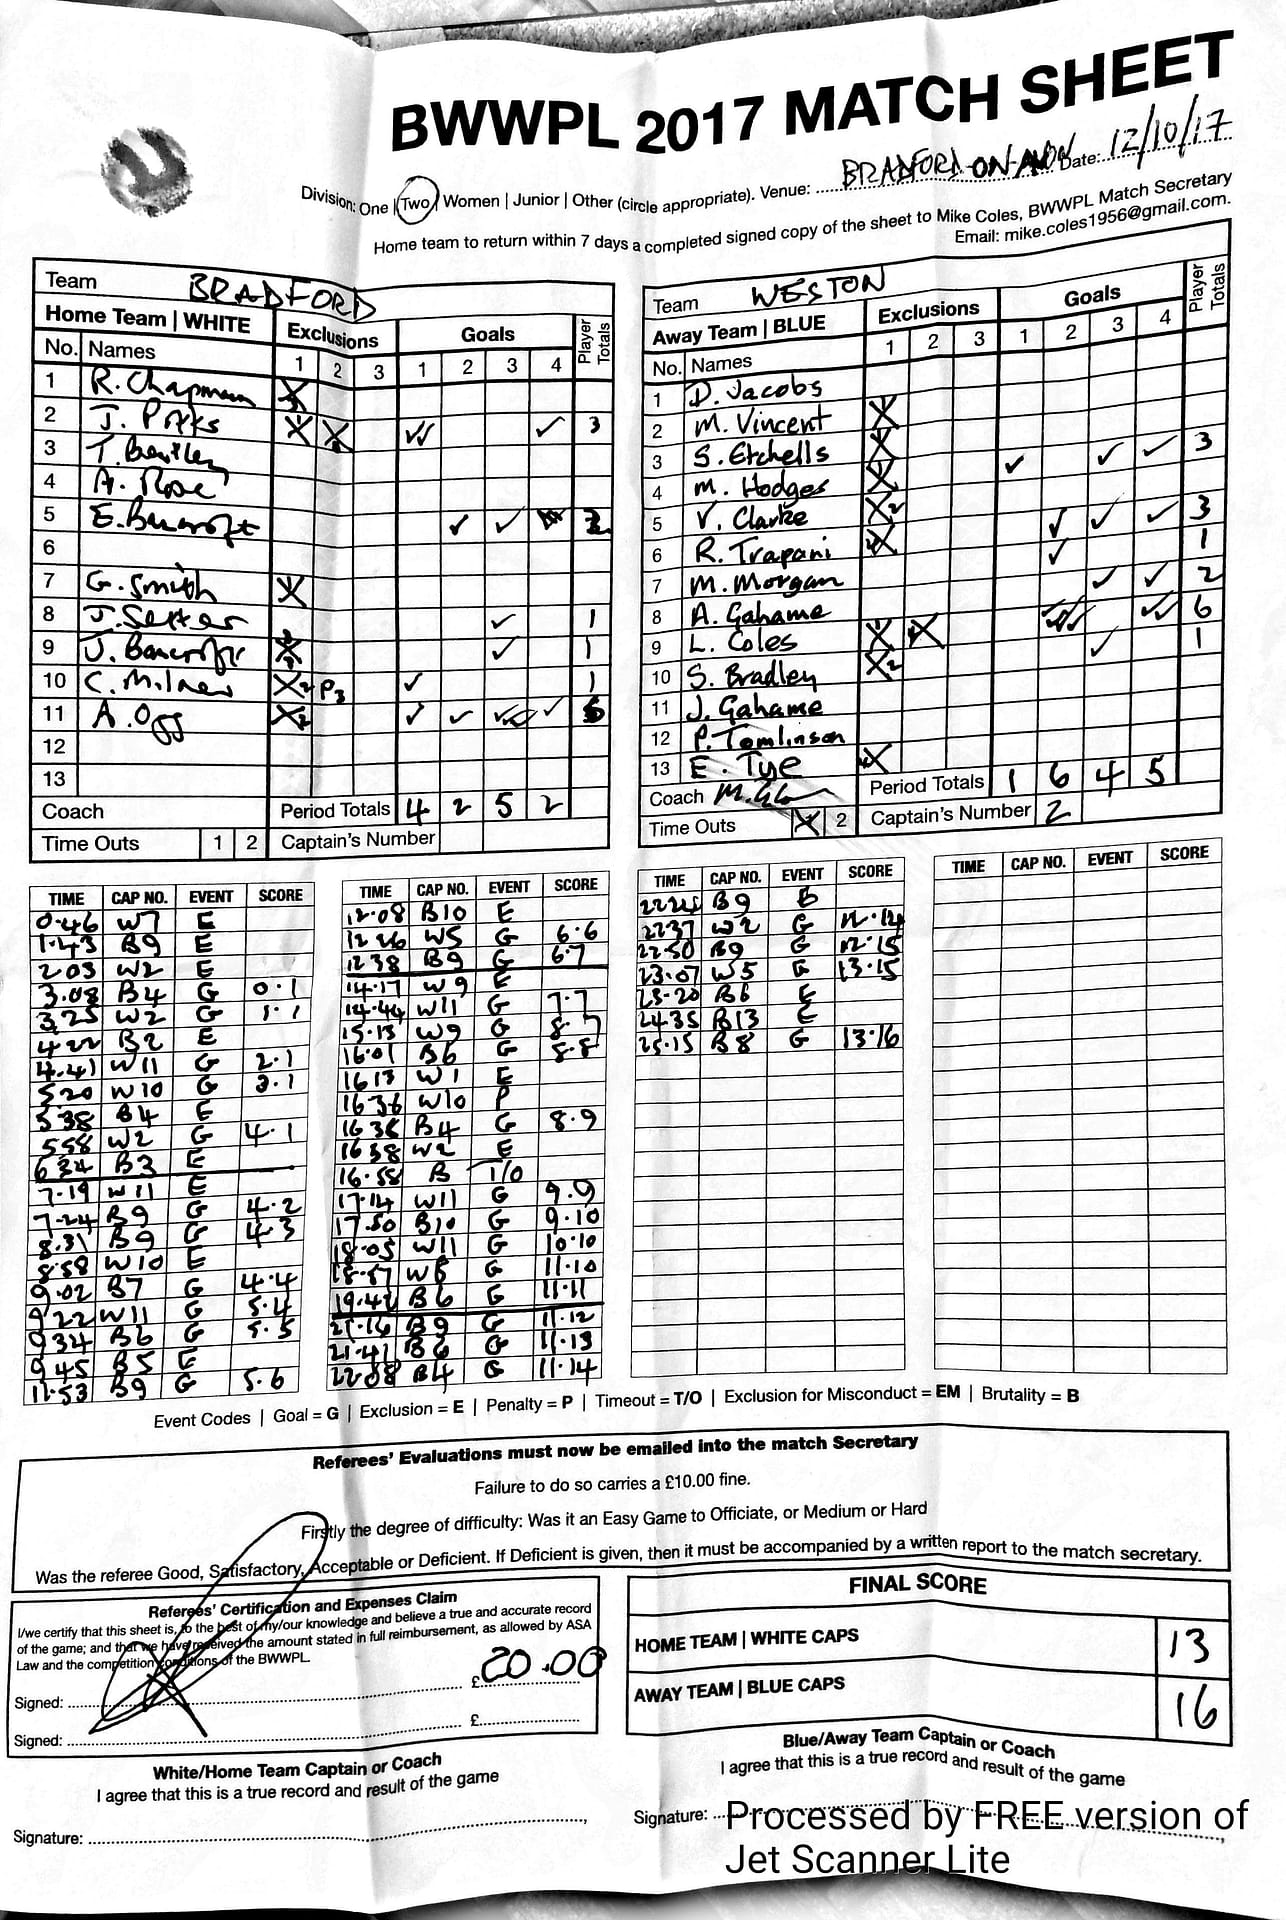 BWWPL 2017 MATCH SHEET
Division: One | Two | Women | Junior | Other (circle appropriate). Venue: BRADFORD-ON-AVON Date: 12/10/17
Home team to return within 7 days a completed signed copy of the sheet to Mike Coles, BWWPL Match Secretary
Email: mike.coles1956@gmail.com.
Team BRADFORD
Home Team | WHITE Exclusions Goals Player Totals
No. Names 1 2 3 1 2 3 4
1 R. Chapman
2 J. Potts 3
3 T. Bentley
4 A. Rose
5 E. Bancroft
6
7 G. Smith
8 J. Setter 1
9 J. Bancroft 1
10 C. Milner P3 1
11 A. Ogg
12
13
Coach Period Totals 4 2 5 2
Time Outs 1 2 Captain's Number
Team WESTON
Away Team | BLUE Exclusions Goals Player Totals
No. Names 1 2 3 1 2 3 4
1 D. Jacobs
2 M. Vincent
3 S. Etchells 3
4 M. Hodges
5 V. Clarke 3
6 R. Trapani 1
7 M. Morgan 2
8 A. Gahame 6
9 L. Coles 1
10 S. Bradley
11 J. Gahame
12 P. Tomlinson
13 E. Tye
Coach Period Totals 1 6 4 5
Time Outs 1 2 Captain's Number 2
TIME CAP NO. EVENT SCORE
0.46 W7 E
1.43 B9 E
2.03 W2 E
3.08 B4 G 0.1
3.25 W2 G 1.1
4.22 B2 E
4.41 W11 G 2.1
5.20 W10 G 3.1
5.38 B4 E
5.58 W2 G 4.1
6.34 B3 E
7.19 W11 E
7.24 B9 G 4.2
8.31 B9 G 4.3
8.58 W10 E
9.02 B7 G 4.4
9.22 W11 G 5.4
9.34 B6 G 5.5
9.45 B5 E
11.53 B9 G 5.6
TIME CAP NO. EVENT SCORE
12.08 B10 E
12.26 W5 G 6.6
12.38 B9 G 6.7
14.17 W9 E
14.44 W11 G 7.7
15.13 W9 G 8.7
16.01 B6 G 8.8
16.13 W1 E
16.36 W10 P
16.36 B4 G 8.9
16.38 W2 E
16.58 B T/O
17.14 W11 G 9.9
17.50 B10 G 9.10
18.05 W11 G 10.10
18.57 W5 G 11.10
19.42 B6 G 11.11
21.16 B9 G 11.12
21.41 B6 G 11.13
22.08 B4 G 11.14
TIME CAP NO. EVENT SCORE
B9
22.37 W2 G 12.14
22.50 B9 G 12.15
23.07 W5 G 13.15
23.20 B6 E
24.35 B13 E
25.15 B8 G 13.16
TIME CAP NO. EVENT SCORE
Event Codes | Goal = G | Exclusion = E | Penalty = P | Timeout = T/O | Exclusion for Misconduct = EM | Brutality = B
Referees' Evaluations must now be emailed into the match Secretary
Failure to do so carries a £10.00 fine.
Firstly the degree of difficulty: Was it an Easy Game to Officiate, or Medium or Hard
Was the referee Good, Satisfactory, Acceptable or Deficient. If Deficient is given, then it must be accompanied by a written report to the match secretary.
Referees' Certification and Expenses Claim
I/we certify that this sheet is, to the best of my/our knowledge and believe a true and accurate record
of the game; and that we have received the amount stated in full reimbursement, as allowed by ASA
Law and the competition conditions of the BWWPL.
Signed: £20.00
Signed: £
FINAL SCORE
HOME TEAM | WHITE CAPS 13
AWAY TEAM | BLUE CAPS 16
White/Home Team Captain or Coach
I agree that this is a true record and result of the game
Signature:
Blue/Away Team Captain or Coach
I agree that this is a true record and result of the game
Signature:
Processed by FREE version of
Jet Scanner Lite